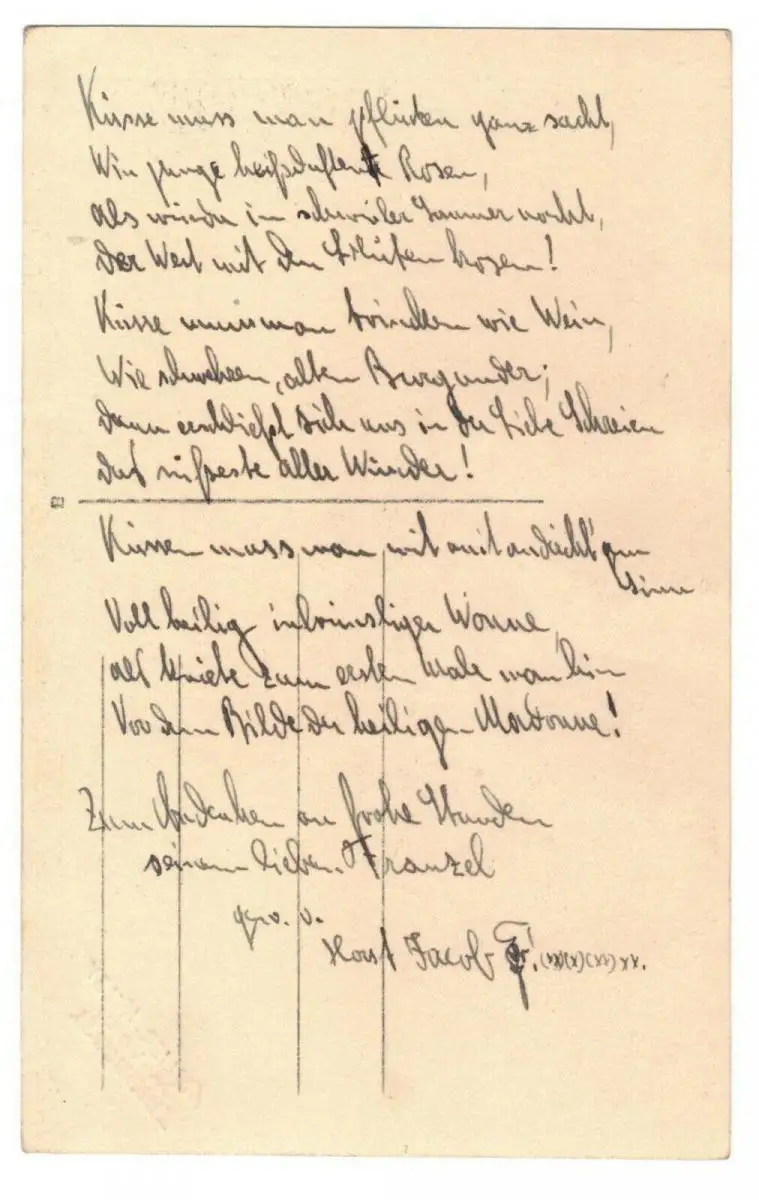 Küsse muss man pflücken ganz sacht,
Wie junge heißduftende Rosen,
als würde in schwüler Sommernacht,
der West mit den Blüten kosen!
Küsse muss man trinken wie Wein,
Wie schweren, alten Burgunder;
dann erschließt sich uns in der Liebe Schrein
das süßeste aller Wunder!
Küssen muss man mit andächt'gem
Sinn
Voll heilig inbrünstiger Wonne,
als kniete zum ersten Male man hin
Vor dem Bilde der heiligen Madonne!
Zum Andenken an frohe Stunden
seinem lieben Franzel
gew. v.
Horst Jacob (xx)(x)(xx)xx.